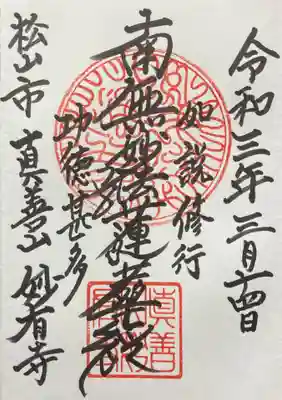 令和三年三月十四日
如説修行
南無妙法蓮華経
功徳甚多
松山市 真善山 妙有寺
真善